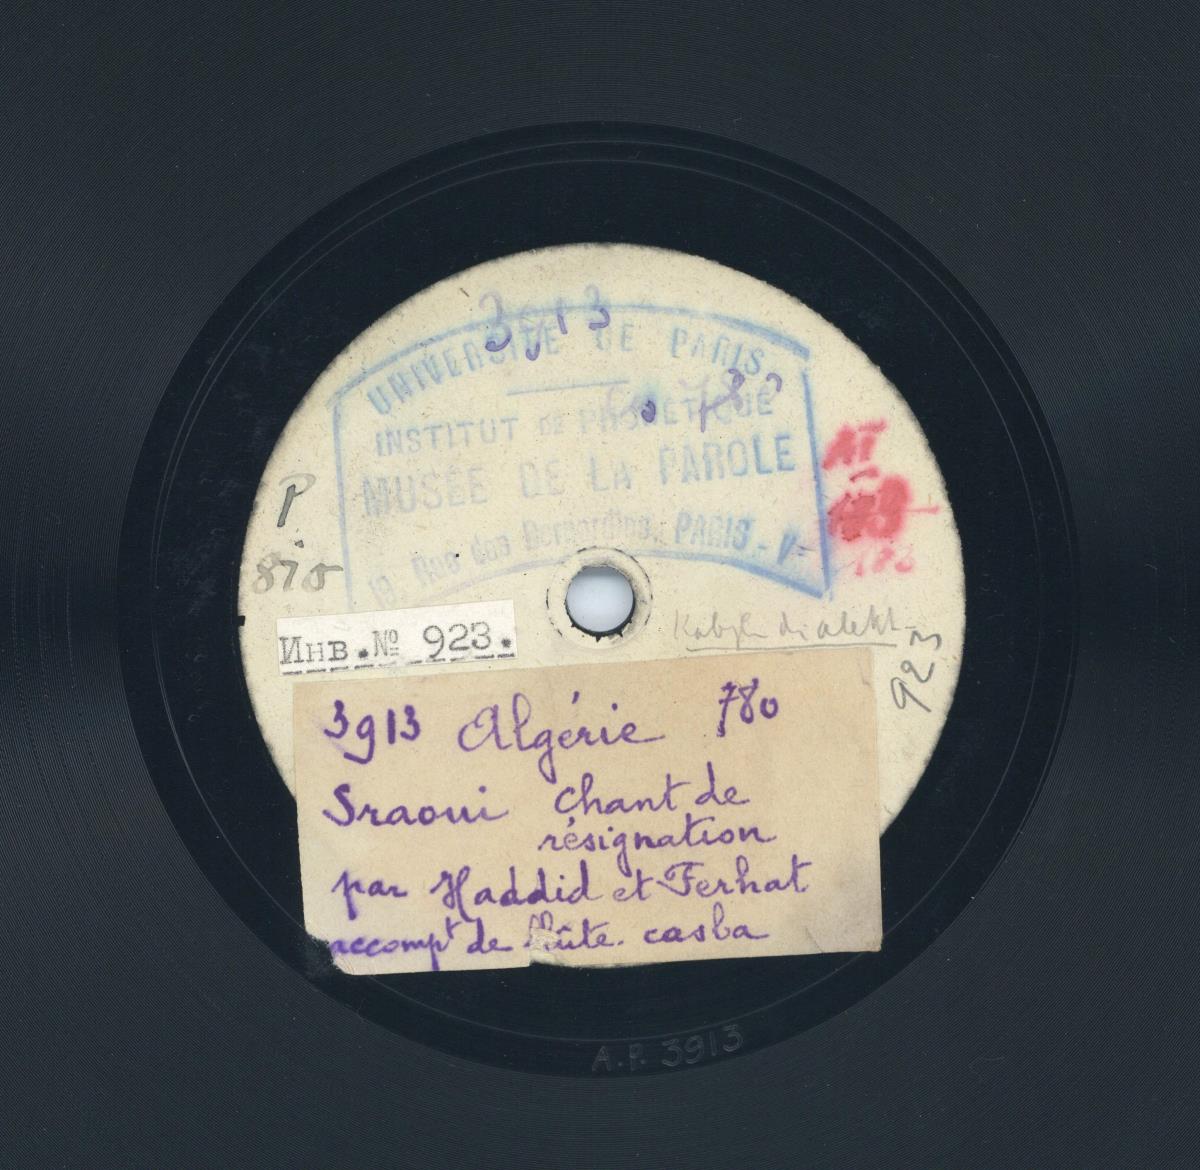 3913
UNIVERSITÉ DE PARIS
780
INSTITUT DE PHONÉTIQUE
MUSÉE DE LA PAROLE
19, Rue des Bernardins, PARIS - Ve
P
Инв.№ 923.
923
3913 Algérie 780
Sraoui chant de
résignation
par Haddid et Ferhat
accompt de flûte. casba
A.P. 3913